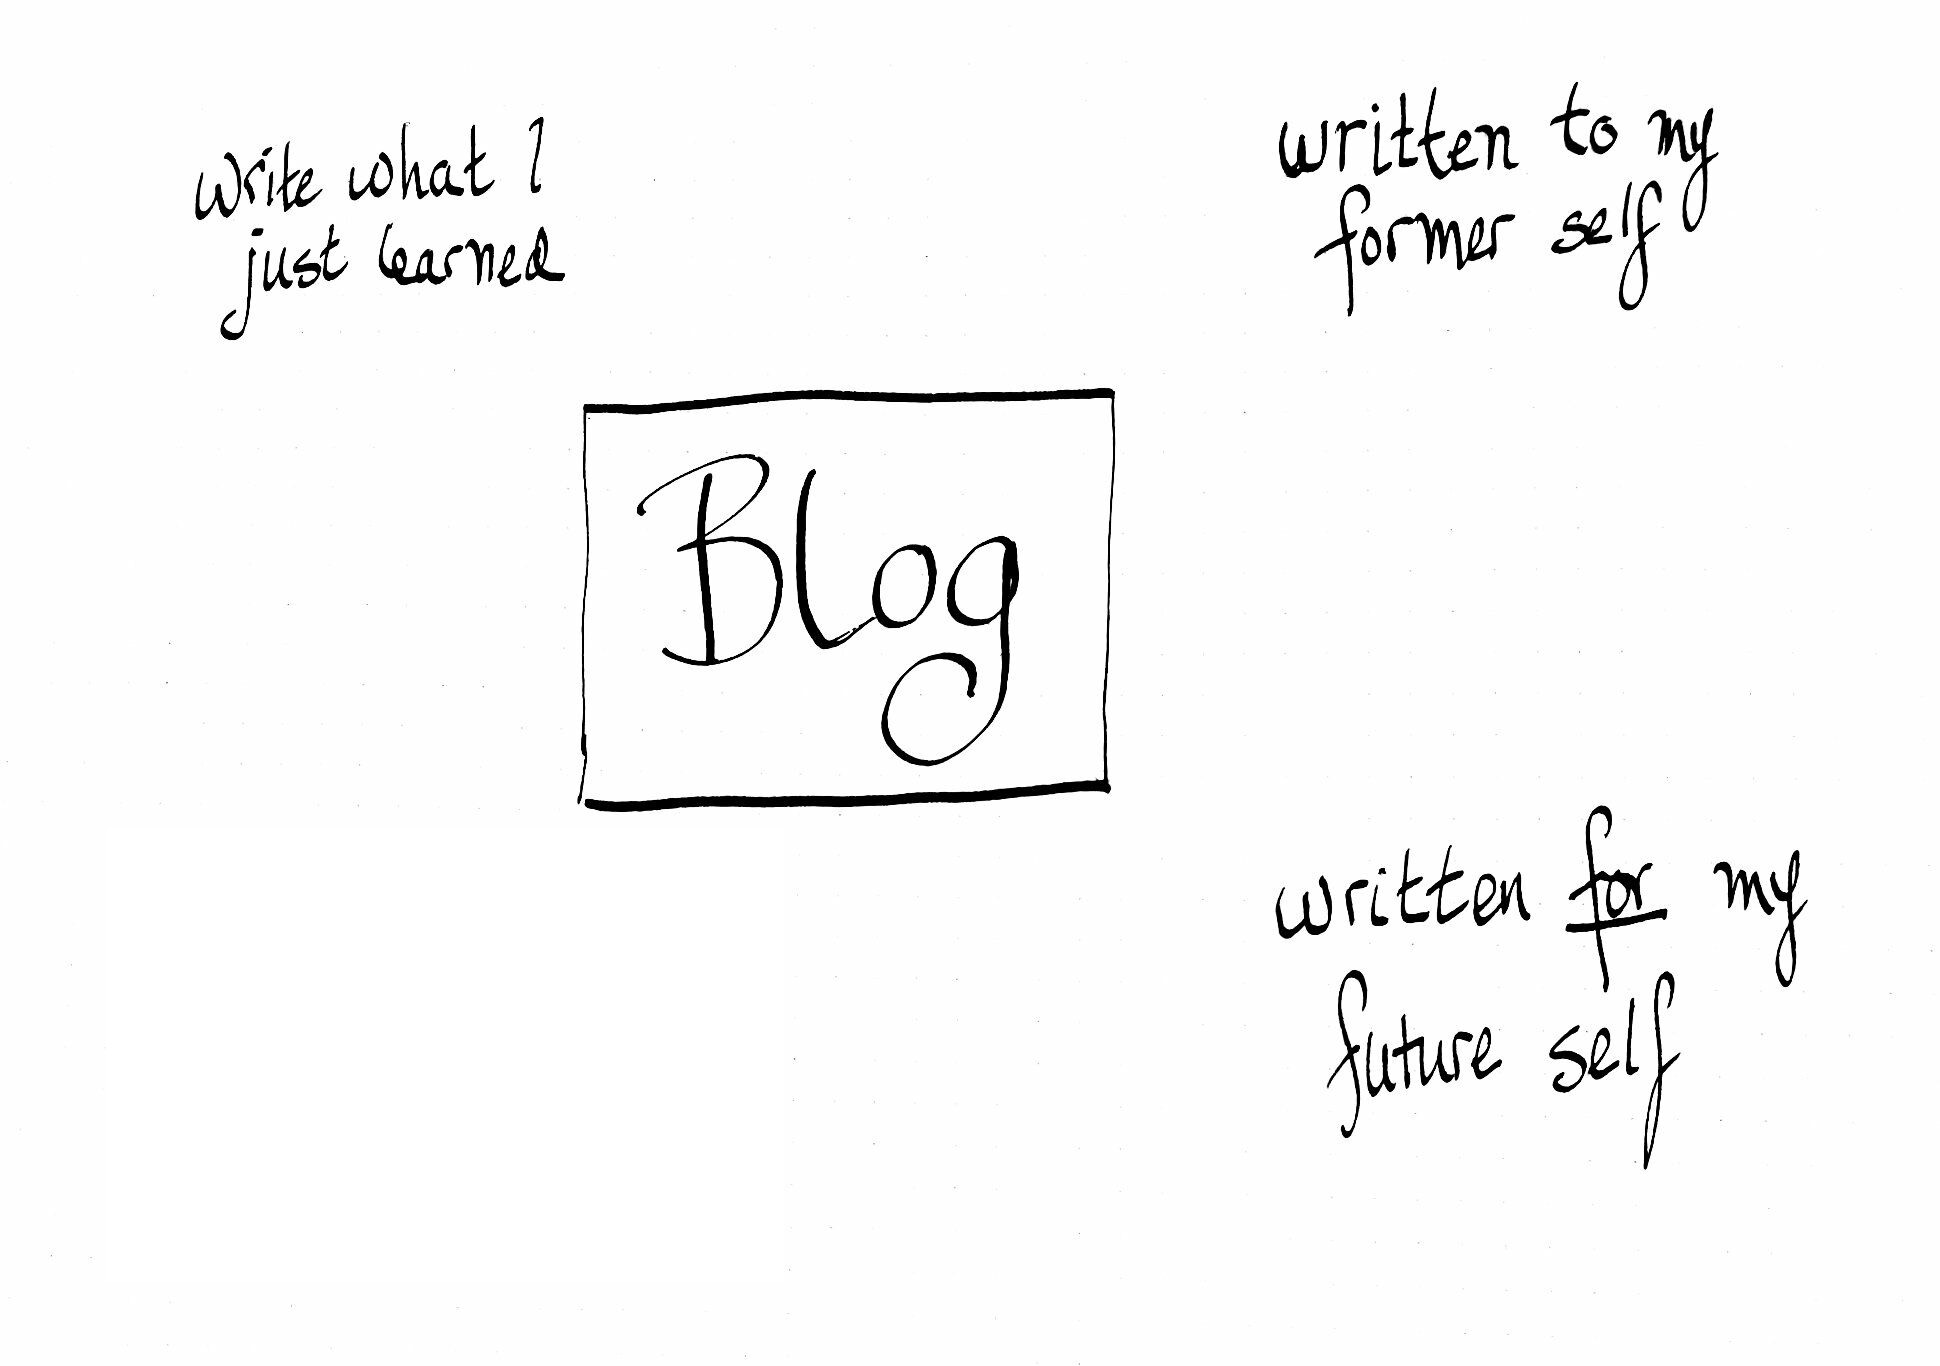 write what I
just learned
written to my
former self
Blog
written for my
future self